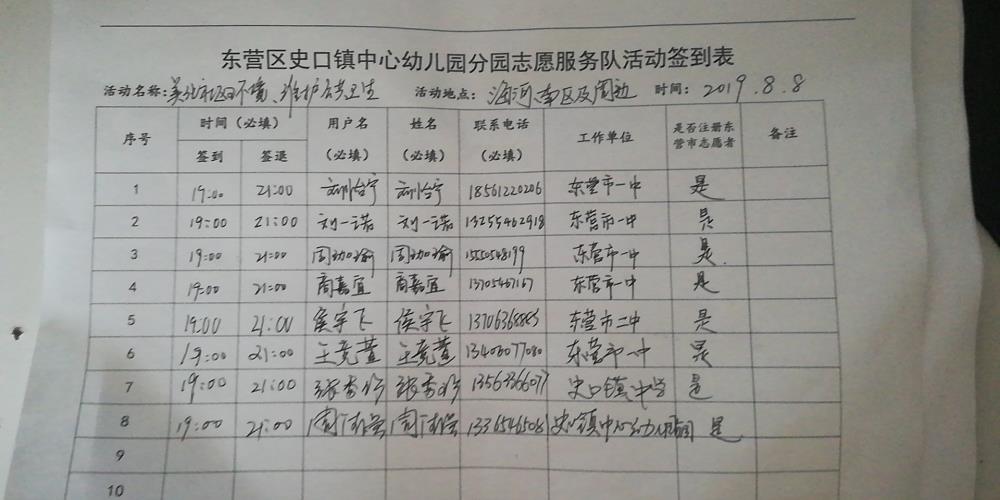 东营区史口镇中心幼儿园分园志愿服务队活动签到表
活动名称: 美化社区环境、维护公共卫生 活动地点: 海河南区及周边 时间: 2019.8.8
序号 时间(必填) 用户名(必填) 姓名(必填) 联系电话(必填) 工作单位 是否注册东营市志愿者 备注
签到 签退
1 19:00 21:00 刘怡宁 刘怡宁 18561220206 东营市一中 是
2 19:00 21:00 刘一诺 刘一诺 13255462918 东营市一中 是
3 19:00 21:00 周劭瑜 周劭瑜 15550548199 东营市一中 是
4 19:00 21:00 商嘉宜 商嘉宜 13705467167 东营市一中 是
5 19:00 21:00 侯宇飞 侯宇飞 东营市二中 是
6 19:00 21:00 王竞萱 王竞萱 东营市一中 是
7 19:00 21:00 13563366077 史口镇中学 是
8 19:00 21:00 史口镇中心幼儿园 是
9
10